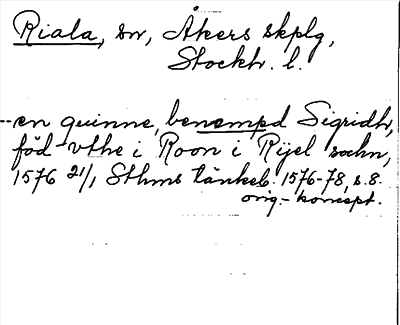 Riala, sn, Åkers skplg,
Stockh. l.
--en quinne, benempd Sigridh,
föd vthe i Roon i Rijel sochn,
1576 21/1, Sthms tänkeb. 1576-78, s. 8.
orig.- koncept.